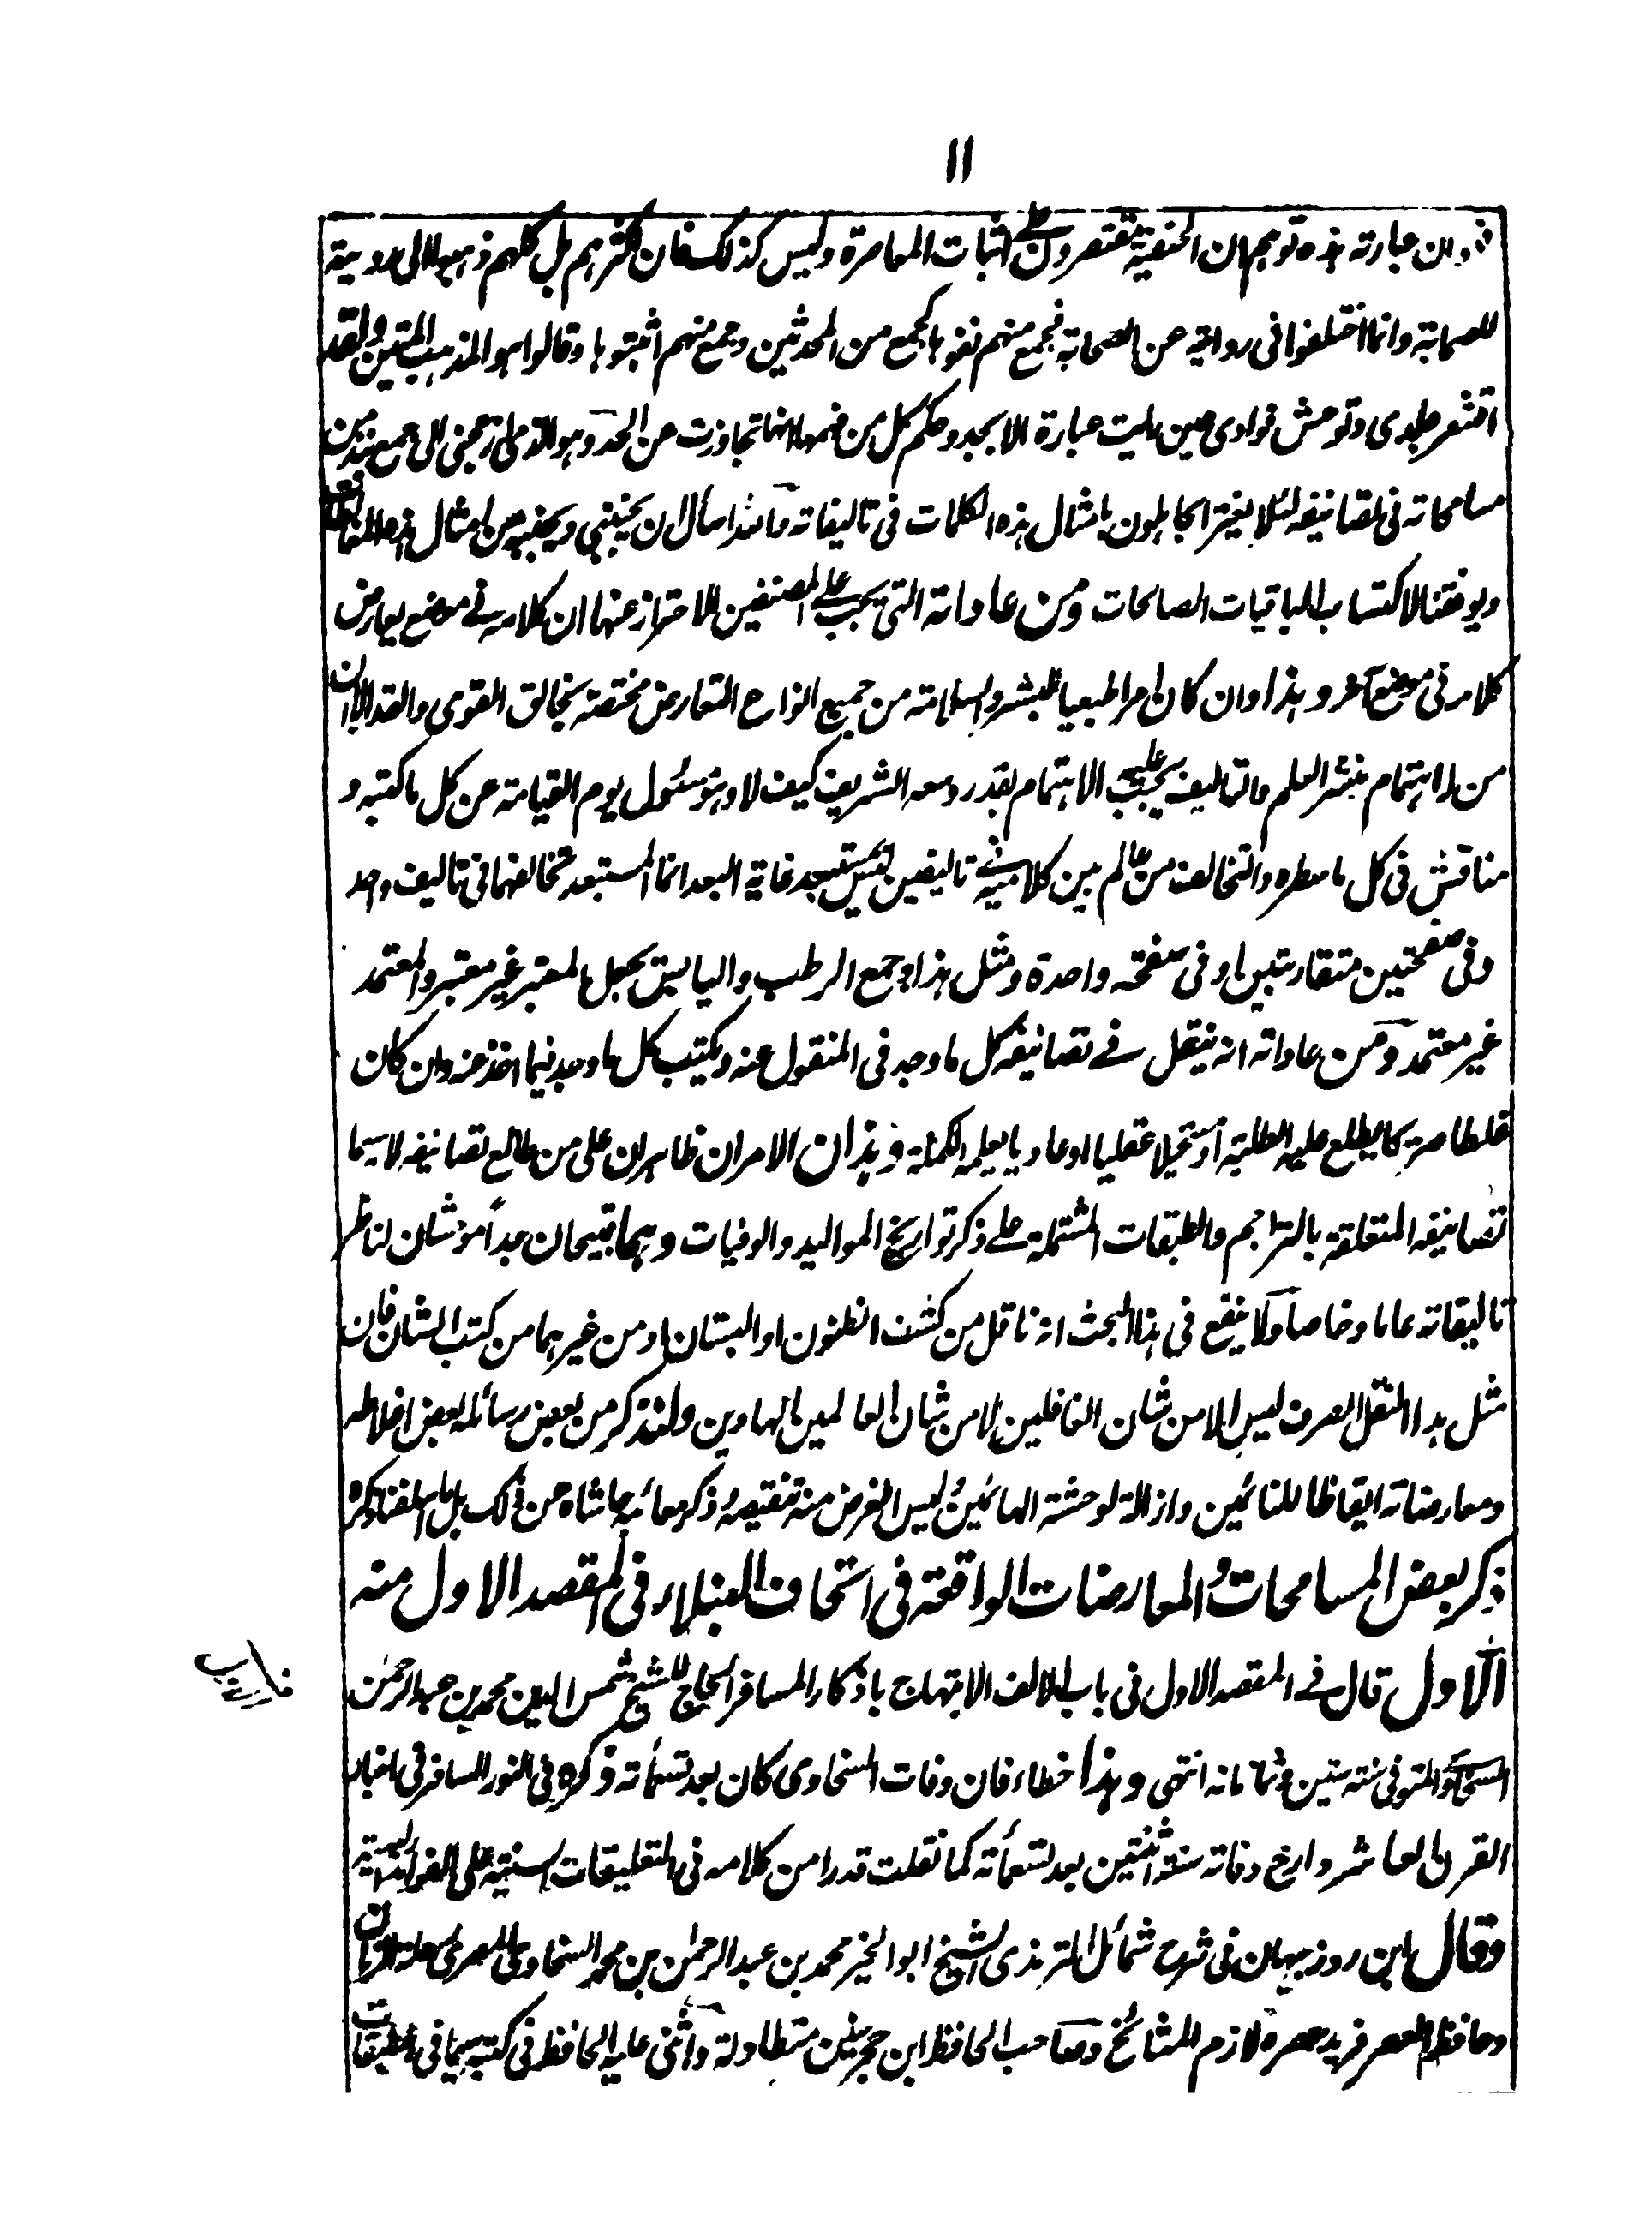 ١١
فان عبارته هذه توهم ان الحنفية مقتصرون على اثبات المعاصرة وليس كذلك فان اكثرهم بل كلهم ذهبوا الى رويته
للصحابة وانما اختلفوا فى روايته عن الصحابة فجمع منهم نفوها كجمع من المحدثين وجمع منهم اثبتوها وقالوا هو المذهب المتين ولقد
اقشعر جلدى وتوحش فوادى حين رايت عبارة الابجد وحكم كل من فهمها انها تجاوزت عن الحد وهو الذى الى جمع نبذ من
مسامحاته فى تصانيفه لئلا يغتر الجاهلون بامثال هذه الكلمات فى تاليفاته والله اسأل ان يجنبنى ويجنبه من امثال هذه
ويوفقنا لاكتساب الباقيات الصالحات ومن عاداته التى يجب على المصنفين الاحتراز عنها ان كلامه فى موضع يعارض
كلامه فى موضع آخر وهذا وان كان امرا طبعيا للبشر والسلامة من جميع انواع التعارض مختصة بخالق القوى والقدر الا ان
من له اهتمام بنشر العلم والتاليف يجب عليه الاهتمام بقدر وسعه الشريف كيف لا وهو مسئول يوم القيامة عن كل ما كتبه و
مناقش فى كل ما سطره والتخالف من عالم بين كلاميه فى تاليفين ليس بمستبعد غاية البعد انما المستبعد تخالفهما فى تاليف واحد
وفى صفحتين متقاربتين او فى صفحة واحدة ومثل هذا وجمع الرطب واليابس يجعل المعتبر غير معتبر والمعتمد
غير معتمد ومن عاداته انه ينقل فى تصانيفه كل ما وجد فى المنقول عنه ويكتب كل ما وجد فيما اخذ عنه وان كان
غلطا صريحا يطلع عليه الطلبة او مستحيلا عقليا او عاديا يعلمه الكملة وهذان الامران ظاهران على من طالع تصانيفه لا سيما
تصانيفه المتعلقة بالتراجم والطبقات المشتملة على ذكر تواريخ المواليد والوفيات وهما قبيحان جداً موحشان لناظر
تاليفاته عاما وخاصا ولا ينفع فى هذا المبحث انه ناقل من كشف الظنون او البستان او من غيرهما من كتب الشان فان
مثل هذا النقل الصرف ليس الا من شان الغافلين لا من شان العالمين الهادين ولنذكر من بعض رسائله بعض اغلاطه
ومعارضاته ايقاظا للنائمين وازالة لوحشة الهائمين وليس الغرض منه تنقيصه وذكر معائبه حاشاه عن ذلك بل ما اسلفنا ذكره
ذكر بعض المسامحات والمعارضات الواقعة فى اتحاف النبلاء فى المقصد الاول منه
الاول قال فى المقصد الاول فى باب الالف الابتهاج باذكار المسافر الحاج للشيخ شمس الدين محمد بن عبد الرحمن
السخاوى المتوفى سنة ستين وثمانمائه انتهى وهذا خطاء فان وفات السخاوى كان بعد تسعمائة ذكره فى النور السافر فى اخبار
القرن العاشر وارخ وفاته سنة اثنتين بعد تسعمائة كما نقلت قدرا من كلامه فى التعليقات السنية على الفوائد البهية
وقال ابن روزبهان فى شرح شمائل الترمذى الشيخ ابو الخير محمد بن عبد الرحمن بن محمد السخاوى المصرى
وحافظ العصر فريد عصره لازم المشائخ وصاحب الحافظ ابن حجر سنين متطاولة واثنى عليه الحافظ فى كتبه سيما فى طبقات